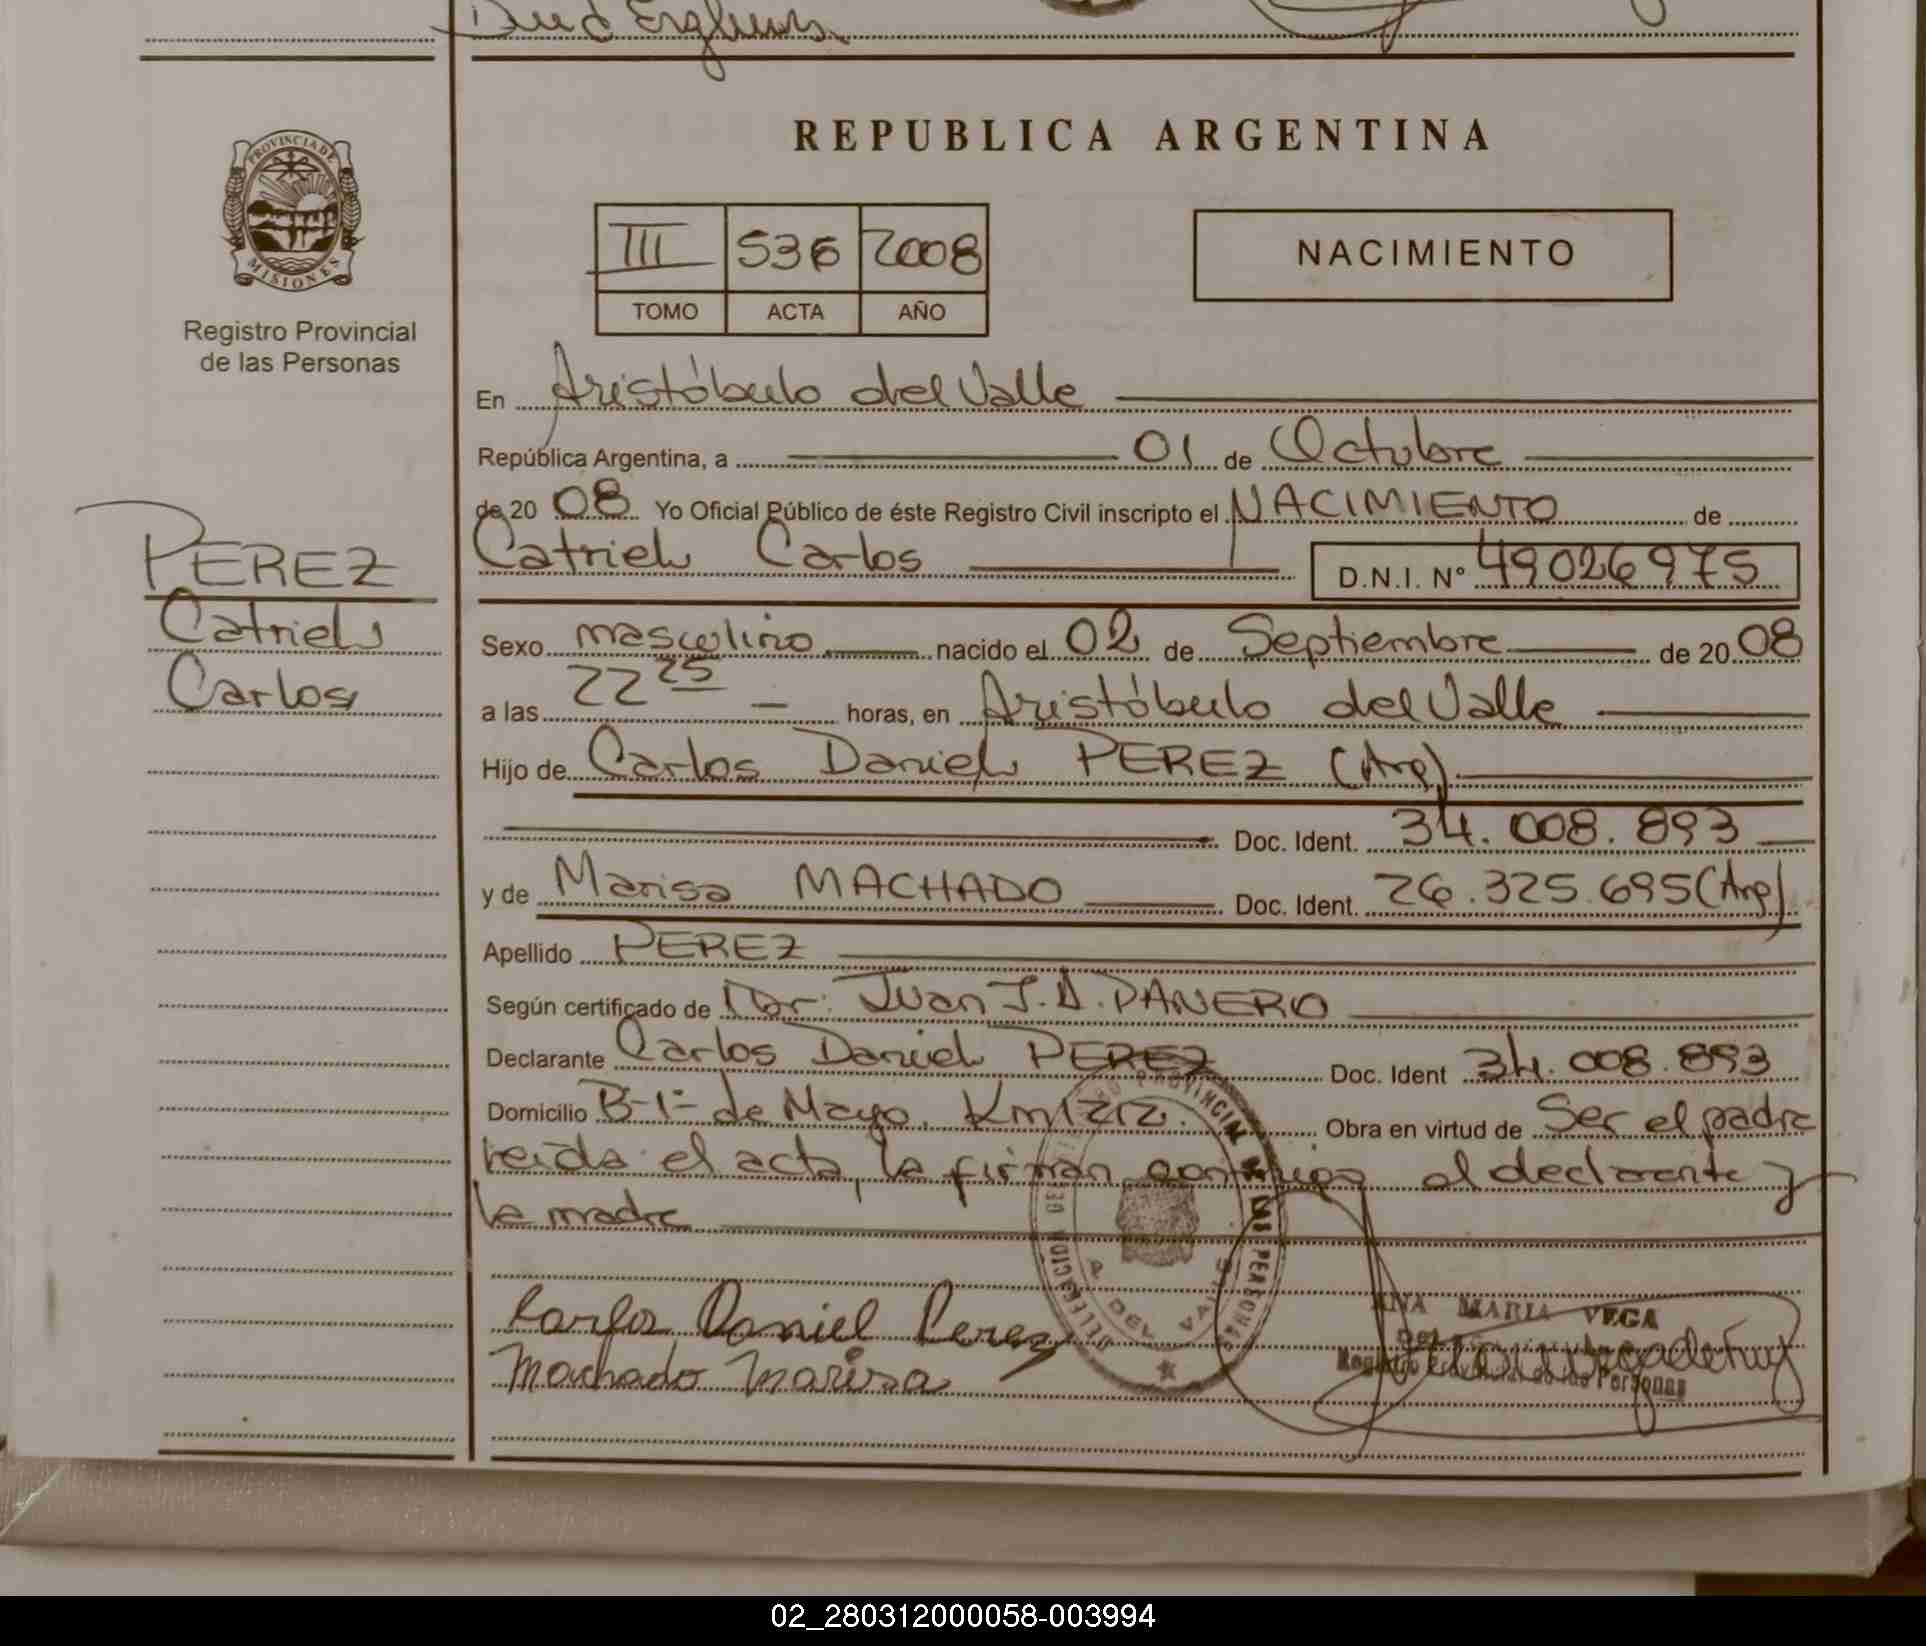 PROVINCIA DE
MISIONES
Registro Provincial
de las Personas
PEREZ
Catriel
Carlos
REPUBLICA ARGENTINA
III 536 2008
TOMO ACTA AÑO
NACIMIENTO
En Aristóbulo del Valle
República Argentina, a 01 de Octubre
de 20 08 Yo Oficial Público de éste Registro Civil inscripto el NACIMIENTO de
Catriel Carlos D.N.I. Nº 49026975
Sexo masculino nacido el 02 de Septiembre de 20 08
a las 22 25 horas, en Aristóbulo del Valle
Hijo de Carlos Daniel PEREZ (Arg)
Doc. Ident. 34.008.893
y de Marisa MACHADO Doc. Ident. 26.325.695 (Arg)
Apellido PEREZ
Según certificado de Dr: Juan J.A. DANERO
Declarante Carlos Daniel PEREZ Doc. Ident 34.008.893
Domicilio B-1º de Mayo, Km 1212. Obra en virtud de Ser el padre
leída el acta, la firman conmigo el declarante y
la madre
Carlos Daniel Perez
Machado Marisa
ANA MARIA VEGA
Registro Provincial de las Personas
02_280312000058-003994